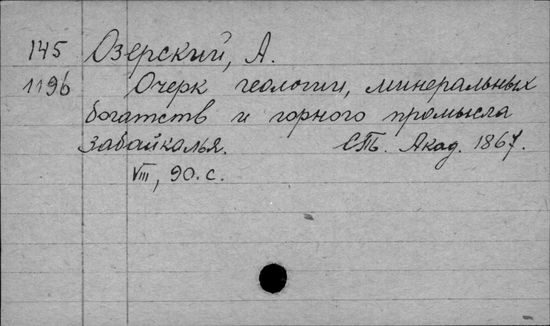 145 Озерский, А.
1196 Очерк геологии, минеральных
богатств и горного промысла
Забайкалья. СПб. Акад. 1867.
VIII, 90. с.